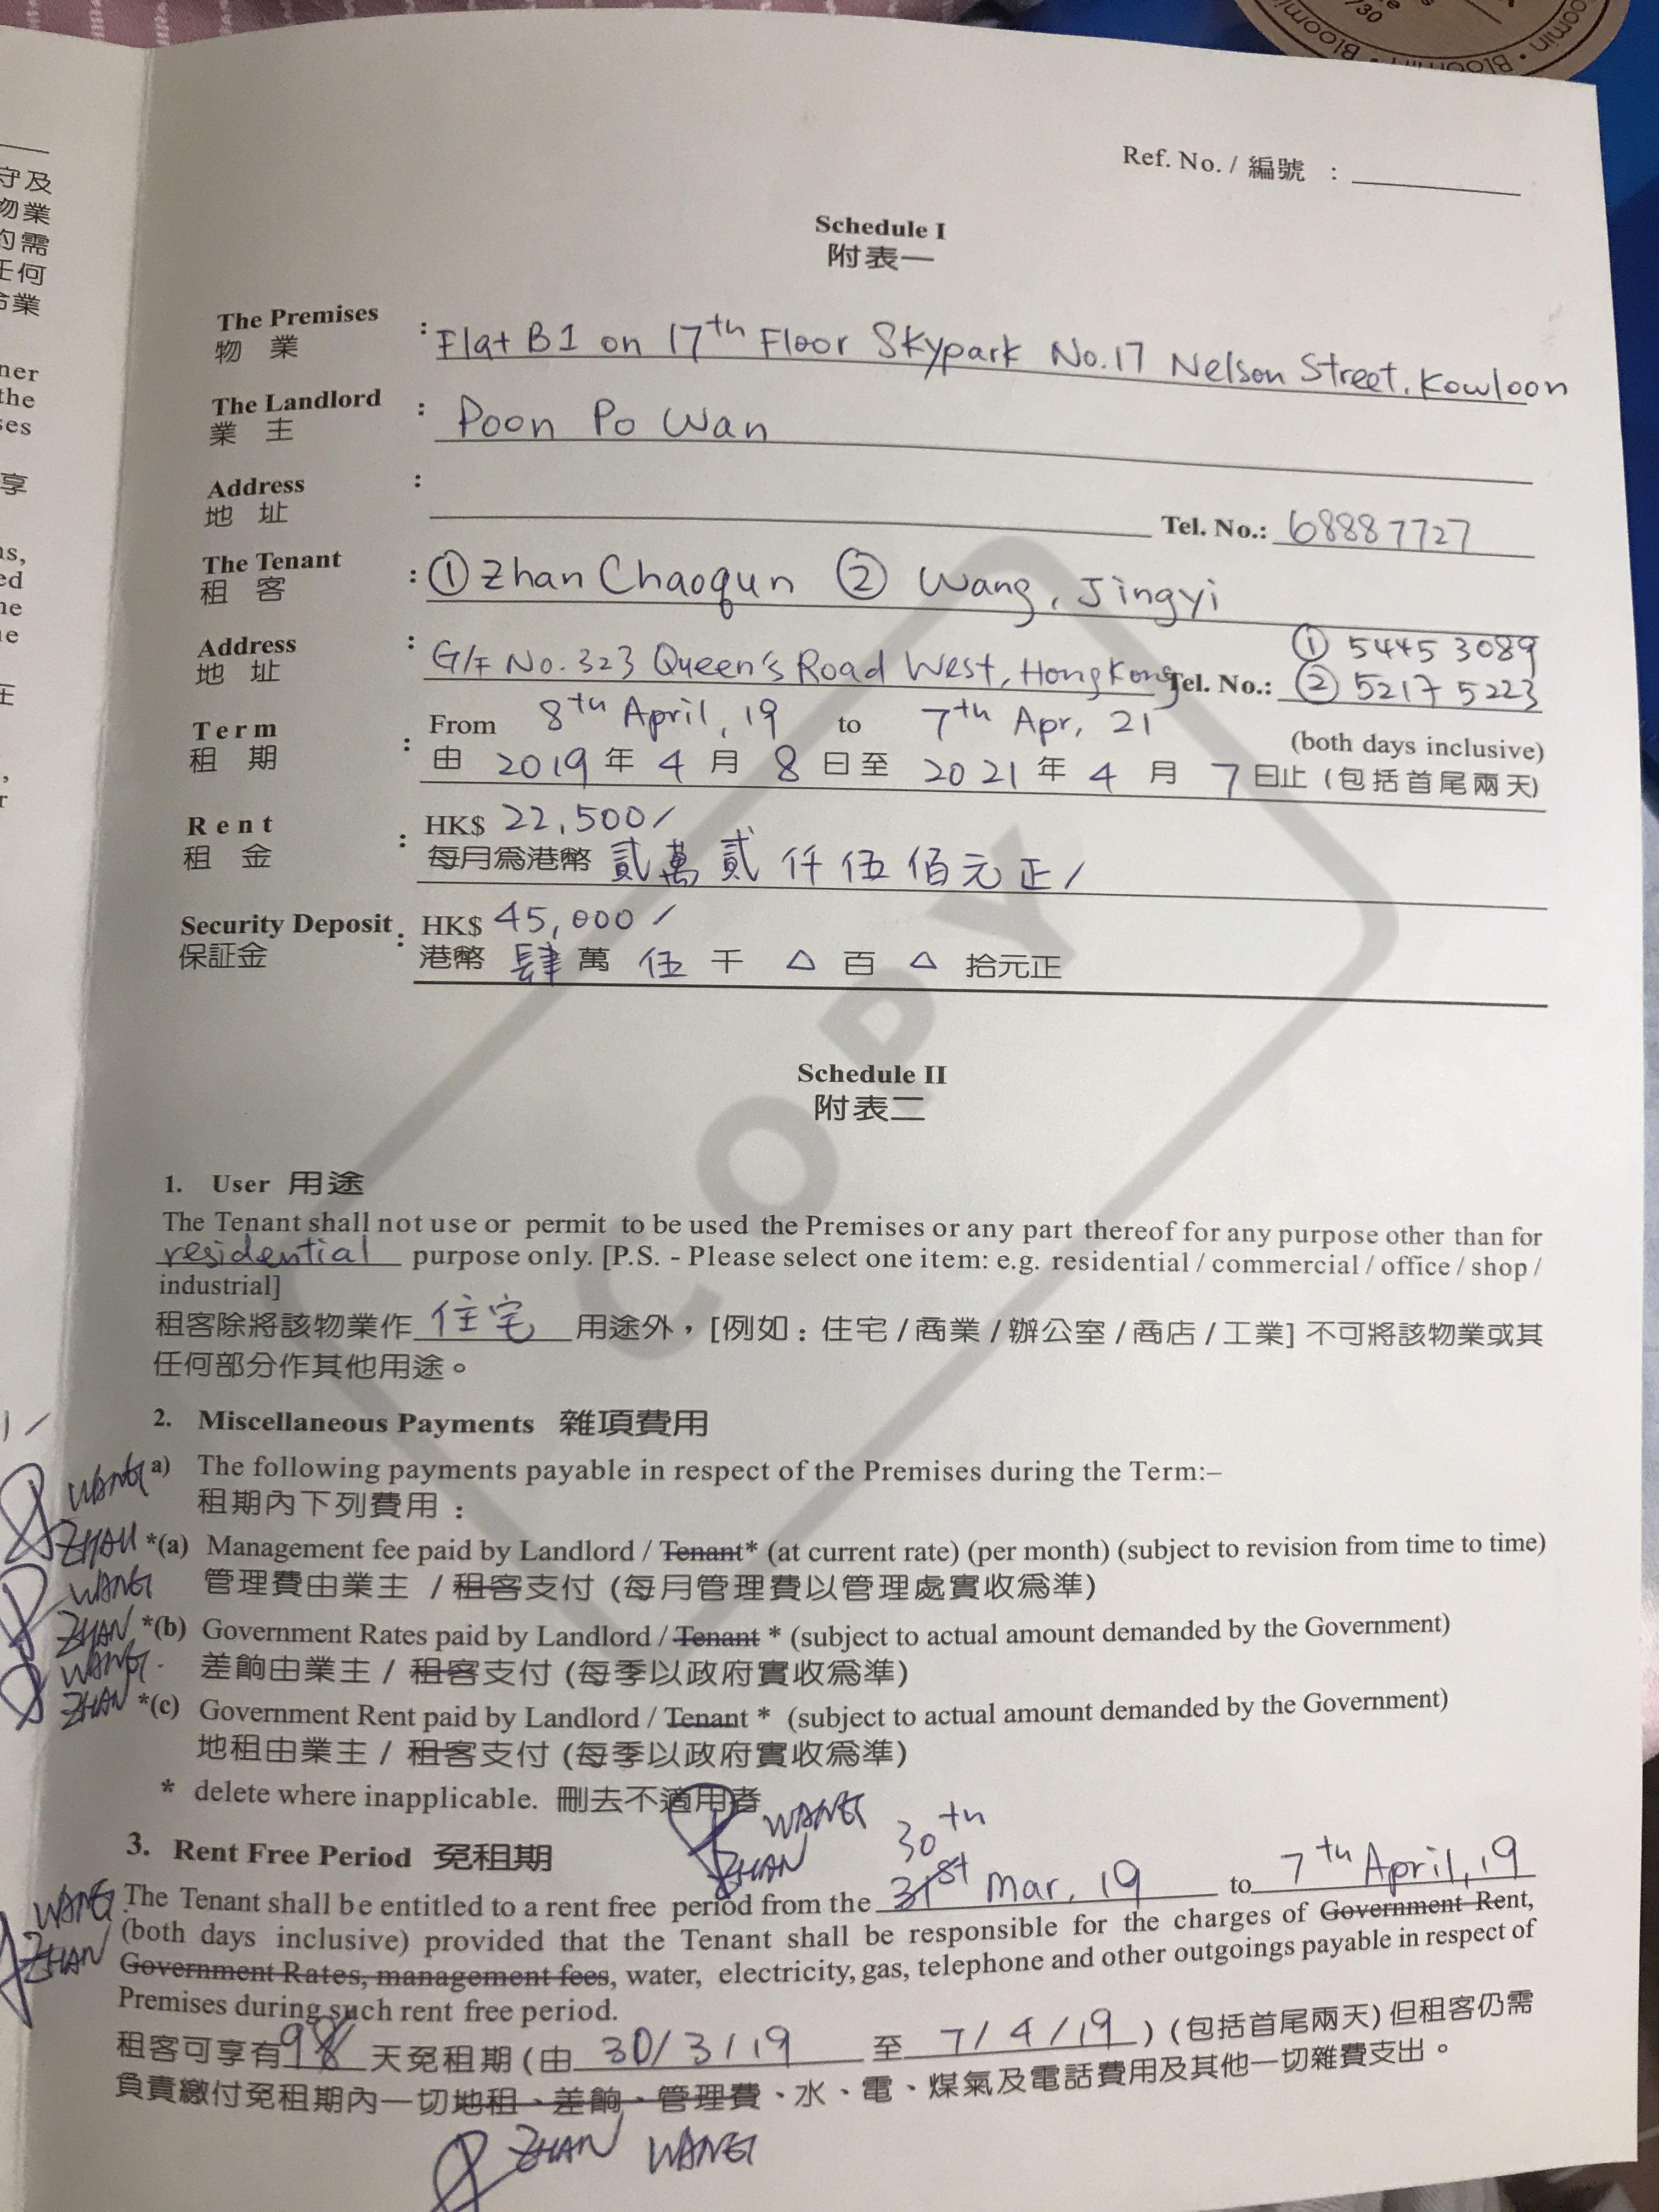 Bloomin · Bloomin
/30
守及
物業
的需
任何
業
ner
the
ses
享
ns,
ed
he
e
Ref. No. / 編號 :
Schedule I
附表一
The Premises : Flat B1 on 17th Floor Skypark No.17 Nelson Street, Kowloon
物 業
The Landlord : Poon Po Wan
業 主
Address :
地 址
Tel. No.: 68887727
The Tenant : ① Zhan Chaoqun ② Wang, Jingyi
租 客
Address : G/F No. 323 Queen's Road West, Hong Kong Tel. No.: ① 5445 3089
地 址 ② 5217 5223
Term : From 8th April, 19 to 7th Apr, 21 (both days inclusive)
租 期 由 2019 年 4 月 8 日至 2021 年 4 月 7 日止 (包括首尾兩天)
Rent : HK$ 22,500/
租 金 每月為港幣 貳萬貳仟伍佰元正/
Security Deposit : HK$ 45,000/
保証金 港幣 肆 萬 伍 千 △ 百 △ 拾元正
COPY
Schedule II
附表二
1. User 用途
The Tenant shall not use or permit to be used the Premises or any part thereof for any purpose other than for
residential purpose only. [P.S. - Please select one item: e.g. residential / commercial / office / shop /
industrial]
租客除將該物業作 住宅 用途外，[例如：住宅 / 商業 / 辦公室 / 商店 / 工業] 不可將該物業或其
任何部分作其他用途。
2. Miscellaneous Payments 雜項費用
WANG a) The following payments payable in respect of the Premises during the Term:–
租期內下列費用：
ZHAN *(a) Management fee paid by Landlord / Tenant* (at current rate) (per month) (subject to revision from time to time)
WANG 管理費由業主 / 租客支付 (每月管理費以管理處實收為準)
ZHAN *(b) Government Rates paid by Landlord / Tenant * (subject to actual amount demanded by the Government)
WANG 差餉由業主 / 租客支付 (每季以政府實收為準)
ZHAN *(c) Government Rent paid by Landlord / Tenant * (subject to actual amount demanded by the Government)
地租由業主 / 租客支付 (每季以政府實收為準)
* delete where inapplicable. 刪去不適用者
WANG
ZHAN
3. Rent Free Period 免租期
30th
WANG The Tenant shall be entitled to a rent free period from the 31st Mar, 19 to 7th April, 19
(both days inclusive) provided that the Tenant shall be responsible for the charges of Government Rent,
ZHAN Government Rates, management fees, water, electricity, gas, telephone and other outgoings payable in respect of
Premises during such rent free period.
租客可享有 98 天免租期 (由 30/3/19 至 7/4/19 ) (包括首尾兩天) 但租客仍需
負責繳付免租期內一切地租、差餉、管理費、水、電、煤氣及電話費用及其他一切雜費支出。
ZHAN WANG